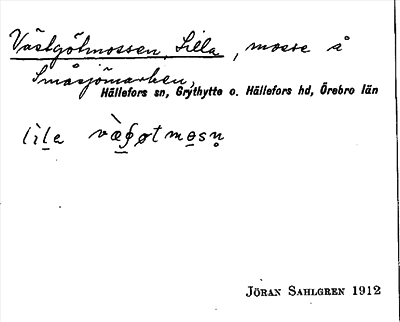 Västgötmossen, Lilla, mosse å
Småsjömarken,
Hällefors sn, Grythytte o. Hällefors hd, Örebro län
Jöran Sahlgren 1912